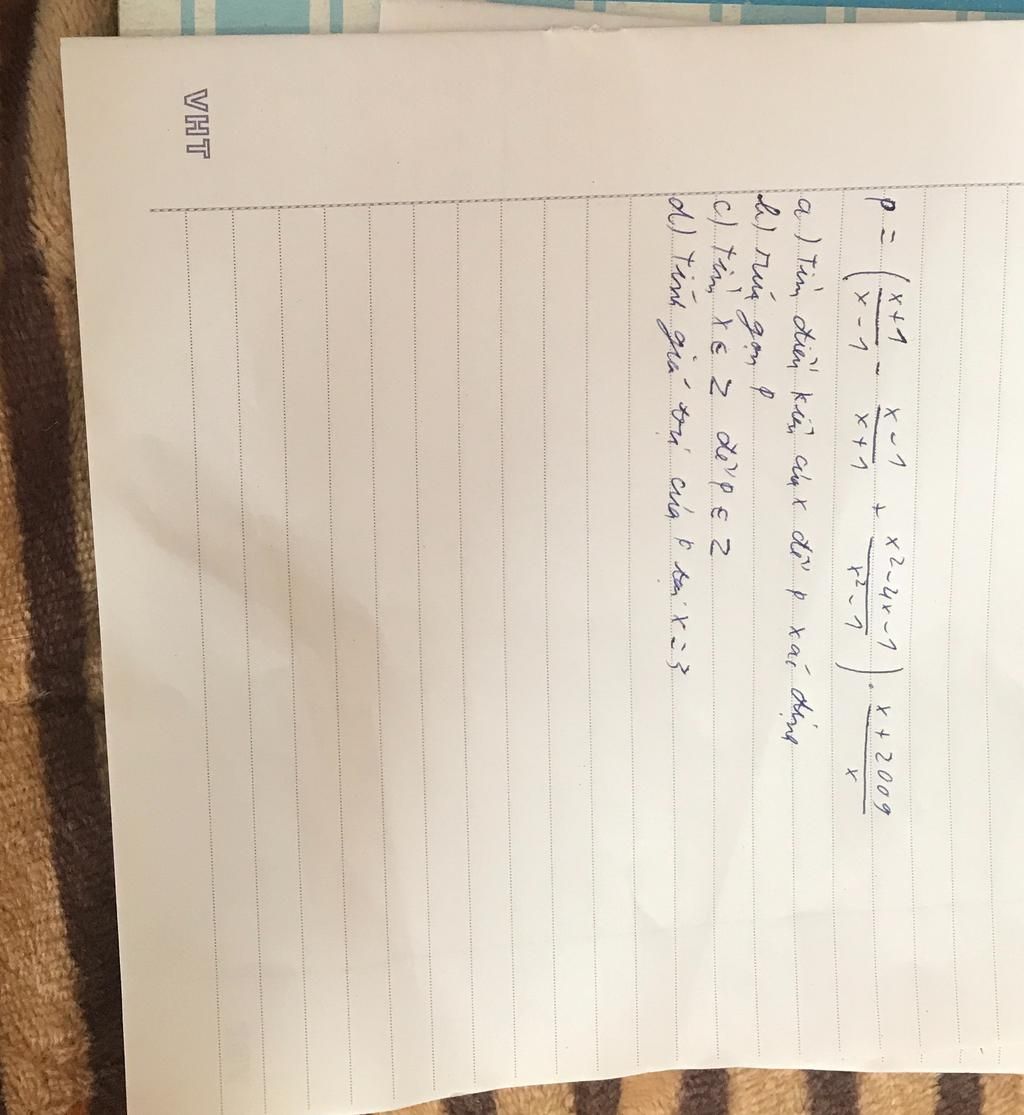 VHT
P = (x+1/x-1 - x-1/x+1 + x²-4x-1/x²-1) . x+2009/x
a) Tìm điều kiện của x để P xác định
b) rút gọn P
c) Tìm x ∈ Z để P ∈ Z
d) Tính giá trị của P tại x = 3